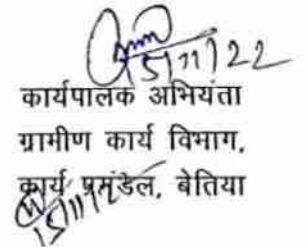 15/11/22
कार्यपालक अभियंता
ग्रामीण कार्य विभाग,
कार्य प्रमंडल, बेतिया
15/11/2